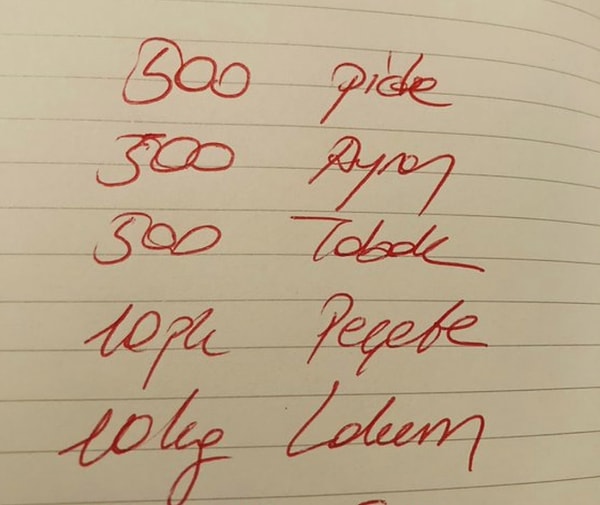 500 pide
500 Ayran
500 Tabak
10pk Peçete
10kg Lokum